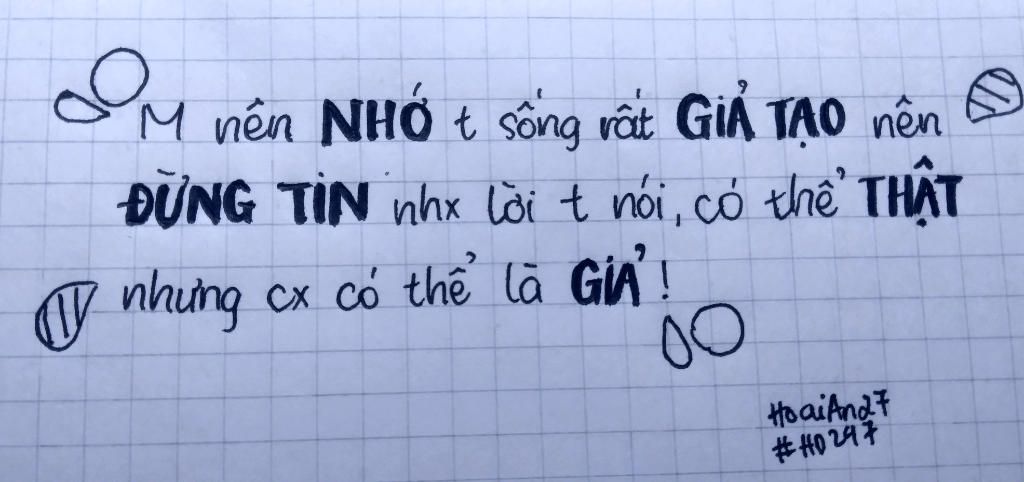 M nên NHỚ t sống rất GIẢ TẠO nên
ĐỪNG TIN nhx lời t nói, có thể THẬT
nhưng cx có thể là GIẢ!
HoaiAn27
#H0297